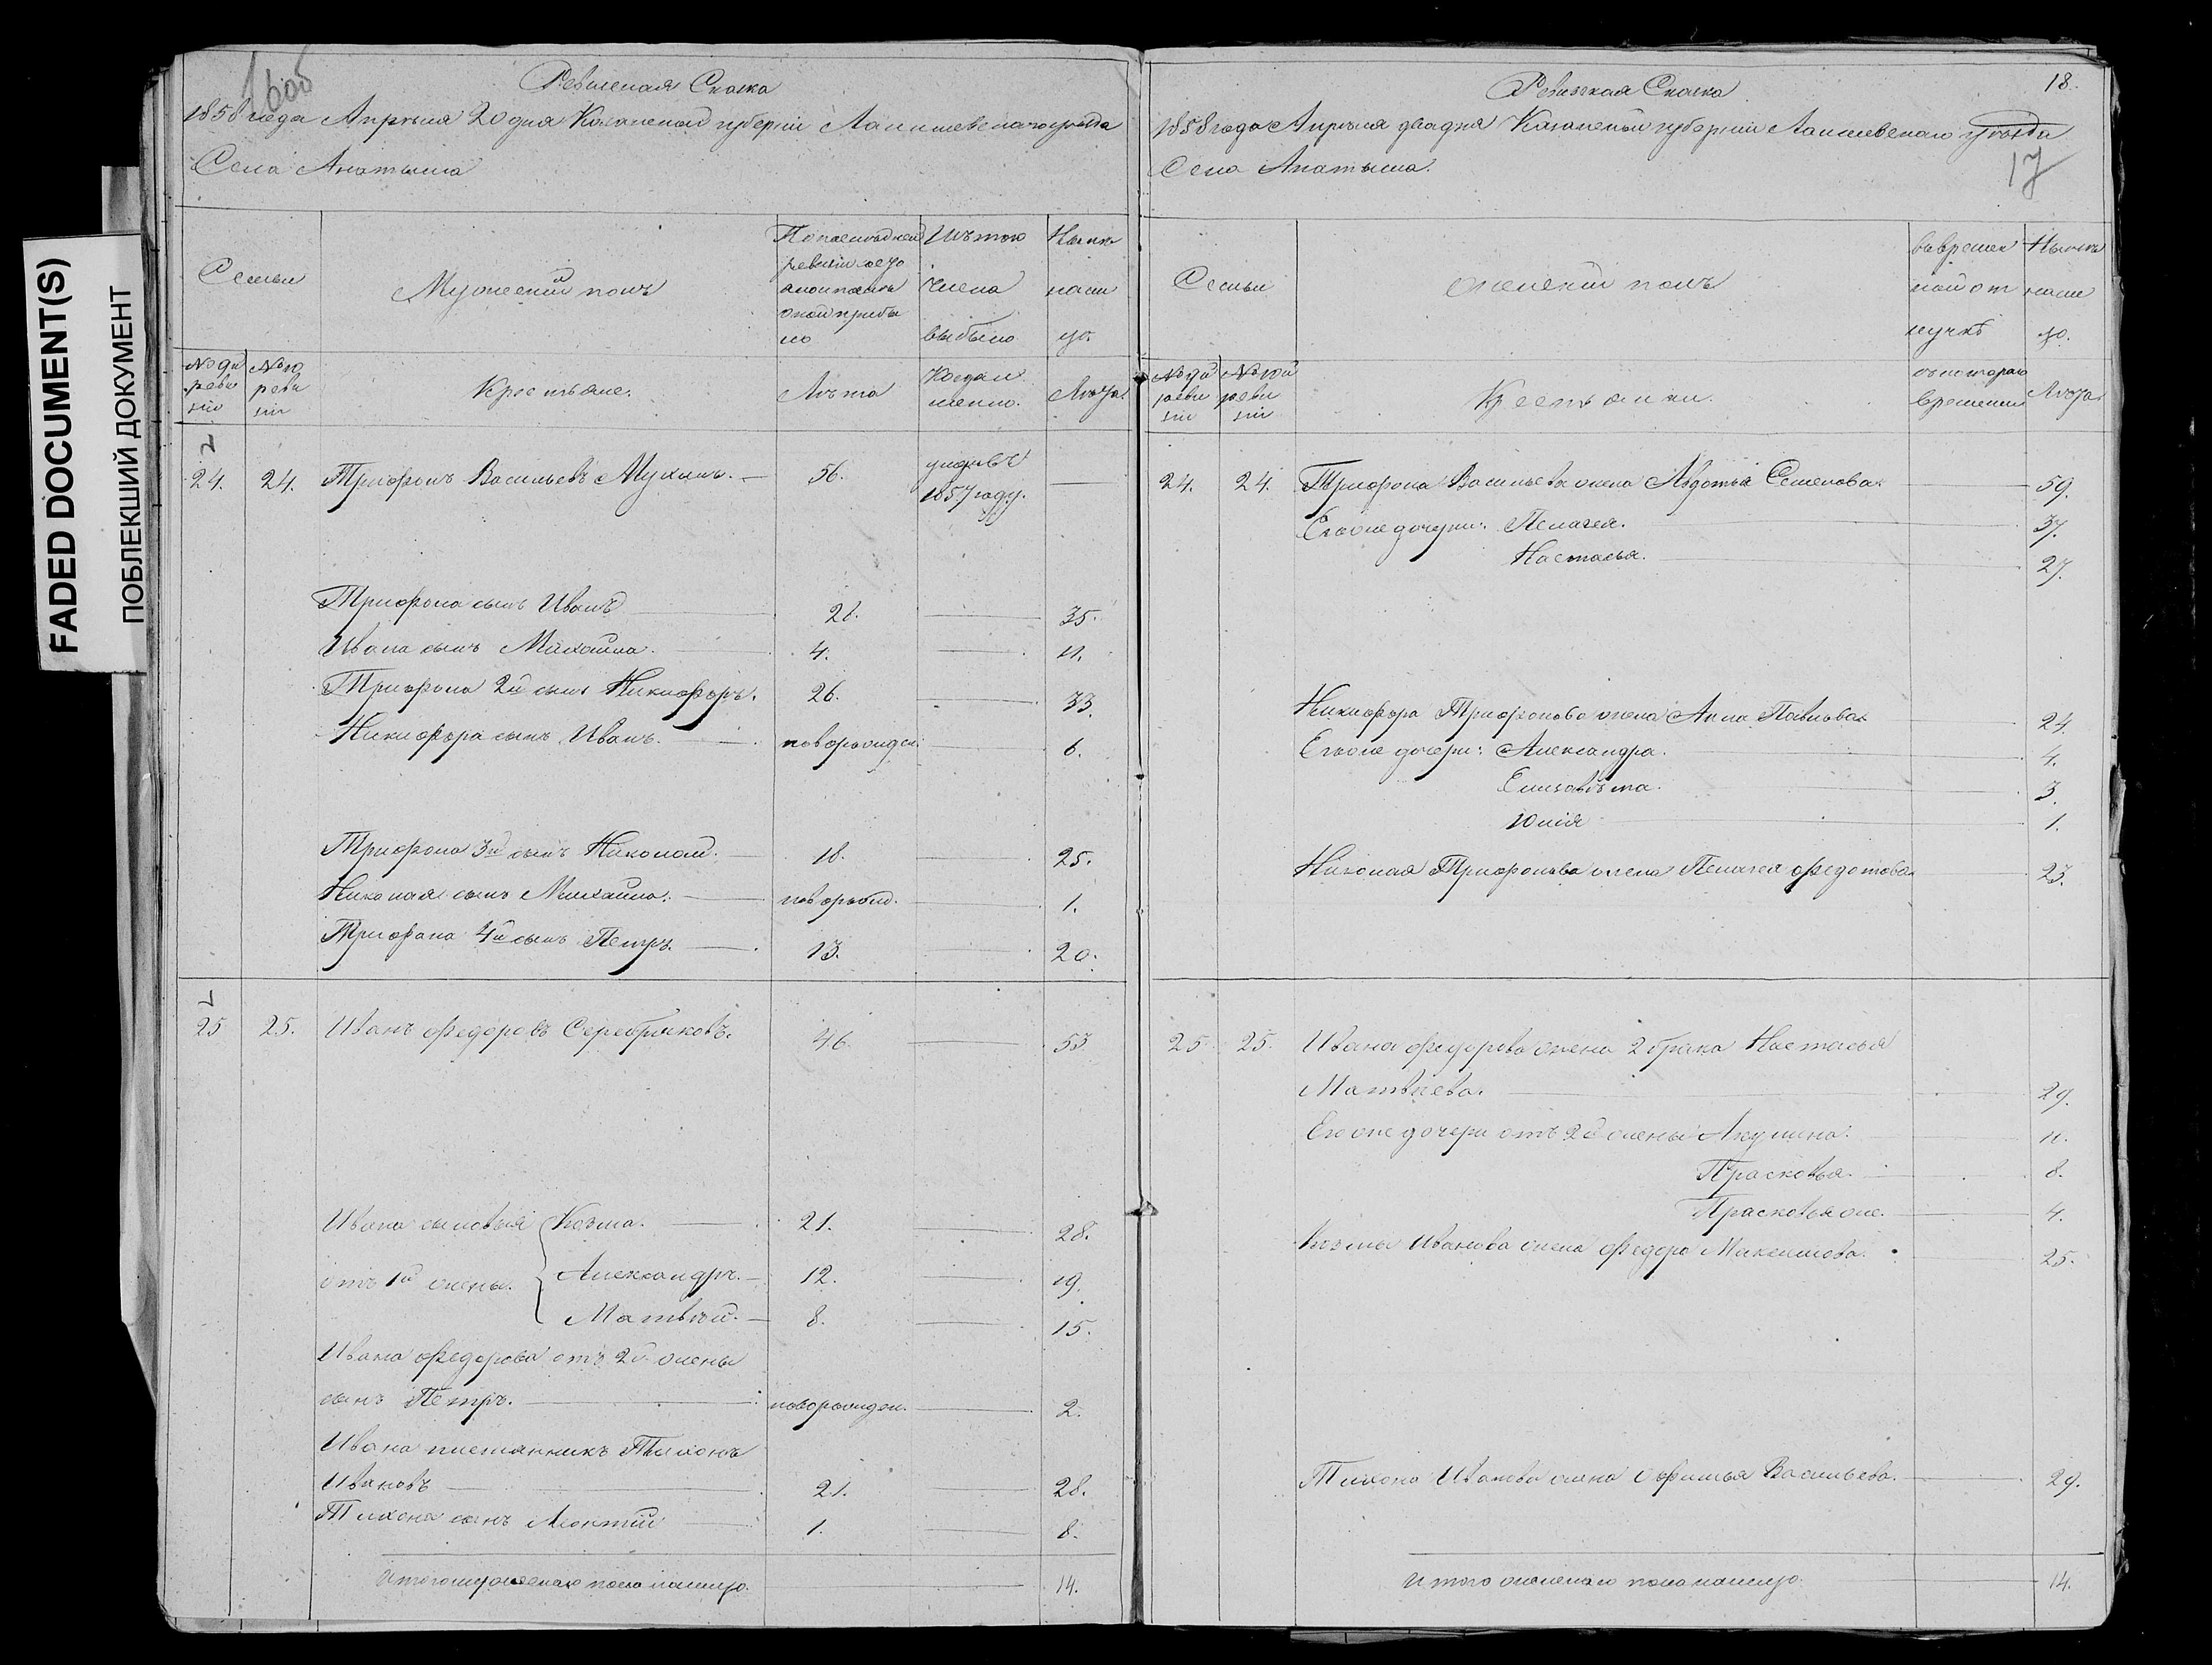 FADED DOCUMENT(S)
ПОБЛЕКШИЙ ДОКУМЕНТ
Ревизская Сказка
1858 года Апреля 20 дня Казанской губернии Лаишевскаго уезда
Села Анатыша
Семьи
Мужеский полъ
По последней ревизии состояло и после оной прибыло
Изъ того числа выбыло
Ныне на лицо.
№ до ревизии
№ по ревизии
Крестьяне.
Лѣта
Когда именно.
Лѣта.
24. 24. Трифонъ Васильевъ Мухинъ. 56. умеръ въ 1857 году.
Трифона сынъ Иванъ 28. 35.
Ивана сынъ Михайла. 4. 11.
Трифона 2й сынъ Никифоръ. 26. 33.
Никифора сынъ Иванъ. новорожден. 6.
Трифона 3й сынъ Николай. 18. 25.
Николая сынъ Михайло. новорожд. 1.
Трифона 4й сынъ Петръ. 13. 20.
25 25. Иванъ Федоровъ Серебряковъ. 46. 53
Ивана сыновья Козма. 21. 28.
отъ 1й жены. Александръ. 12. 19.
Матвѣй. 8. 15.
Ивана Федорова отъ 2й жены
сынъ Петръ. новорожден. 2.
Ивана племянникъ Тихонъ
Ивановъ 21. 28.
Тихона сынъ Леонтий 1. 8.
Итого мужескаго пола налицо. 14.
Ревизская Сказка
18.
1858 года Апреля двадня Казанской губернии Лаишевскаго уезда
Села Анатыша.
17
Семьи
Женский полъ
Во временной отлучкѣ
Ныне на лицо.
№ до ревизии
№ по ревизии
Крестьянки.
Съ котораго времени
Лѣта
24. 24. Трифона Васильева жена Авдотья Семенова. 59.
Его же дочери: Пелагея. 37.
Настасья. 27.
Никифора Трифонова жена Анна Павлова 24.
Его же дочери: Александра. 4.
Елизавѣта. 3.
Юлія 1.
Николая Трифонова жена Пелагея Федотова 23.
25 25. Ивана Федорова жена 2 брака Настасья
Матвѣева. 29.
Его же дочери отъ 2й жены Акулина. 11.
Прасковья. 8.
Прасковья же. 4.
Козмы Иванова жена Федора Максимова. 25.
Тихона Иванова жена Офимья Васильева. 29.
Итого женскаго пола налицо. 14.